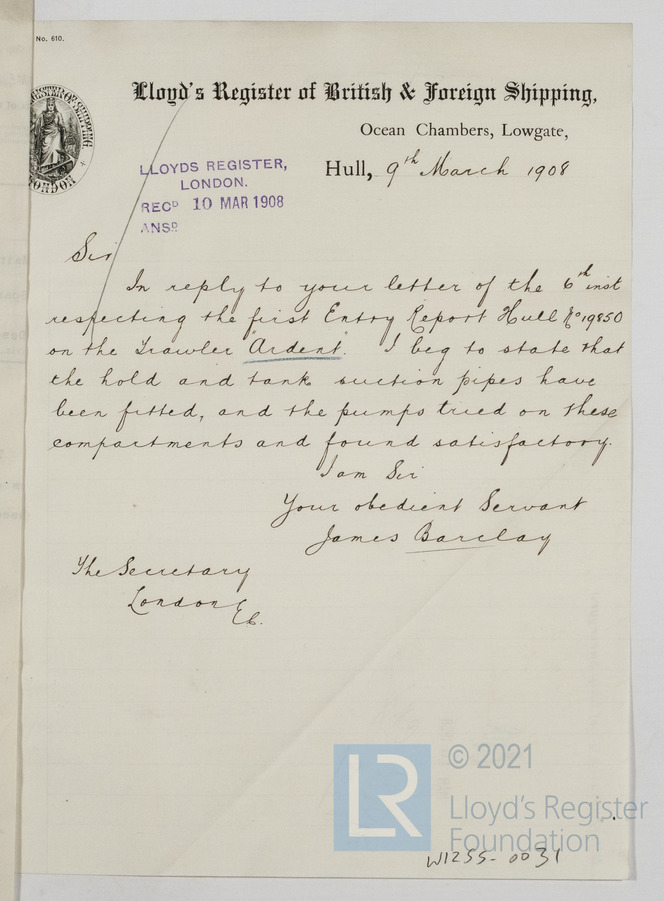 No. 610.
Lloyd's Register of British & Foreign Shipping,
Ocean Chambers, Lowgate,
Hull, 9th March 1908
LLOYDS REGISTER,
LONDON.
RECD 10 MAR 1908
ANSD
Sir
In reply to your letter of the 6th inst
respecting the first Entry Report Hull No 19850
on the Trawler "Ardent". I beg to state that
the hold and tank suction pipes have
been fitted, and the pumps tried on these
compartments and found satisfactory.
I am Sir
Your obedient Servant
James Barclay
The Secretary
London
EC.
LR
© 2021
Lloyd's Register
Foundation
W1255-0031